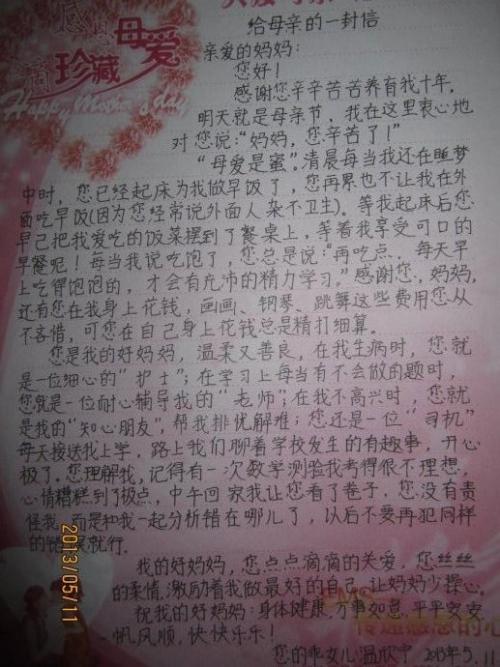 珍藏
母爱
Happy Mother's day
给母亲的一封信
亲爱的妈妈:
您好!
感谢您辛辛苦苦养育我十年。
明天就是母亲节,我在这里衷心地
对您说:“妈妈,您辛苦了!”
“母爱是蜜”。清晨每当我还在睡梦
中时,您已经起床为我做早饭了,您再累也不让我在外
面吃早饭(因为您经常说外面人杂不卫生)。等我起床后您
早已把我爱吃的饭菜摆到了餐桌上,等着我享受可口的
早餐呢!每当我说吃饱了,您总是说:“再吃点,每天早
上吃得饱饱的,才会有充沛的精力学习。”感谢您,妈妈,
还有您在我身上花钱,画画、钢琴、跳舞这些费用您从
不吝惜,可您在自己身上花钱总是精打细算。
您是我的好妈妈,温柔又善良,在我生病时,您就
是一位细心的“护士”;在学习上每当有不会做的题时,
您就是一位耐心辅导我的“老师”;在我不高兴时,您就
是我的“知心朋友”,帮我排忧解难;您还是一位“司机”
每天接送我上学,路上我们聊着学校发生的有趣事,开心
极了。您理解我,记得有一次数学测验我考得很不理想,
心情糟糕到了极点,中午回家我让您看了卷子,您没有责
怪我,而是和我一起分析错在哪儿了,以后不要再犯同样
的错误就行。
我的好妈妈,您点点滴滴的关爱,您丝丝
的柔情,激励着我做最好的自己,让妈妈少操心。
祝我的好妈妈:身体健康,万事如意,平平安安
一帆风顺,快快乐乐!
您的乖女儿:温欣宁 2013年5.11
2013/05/11